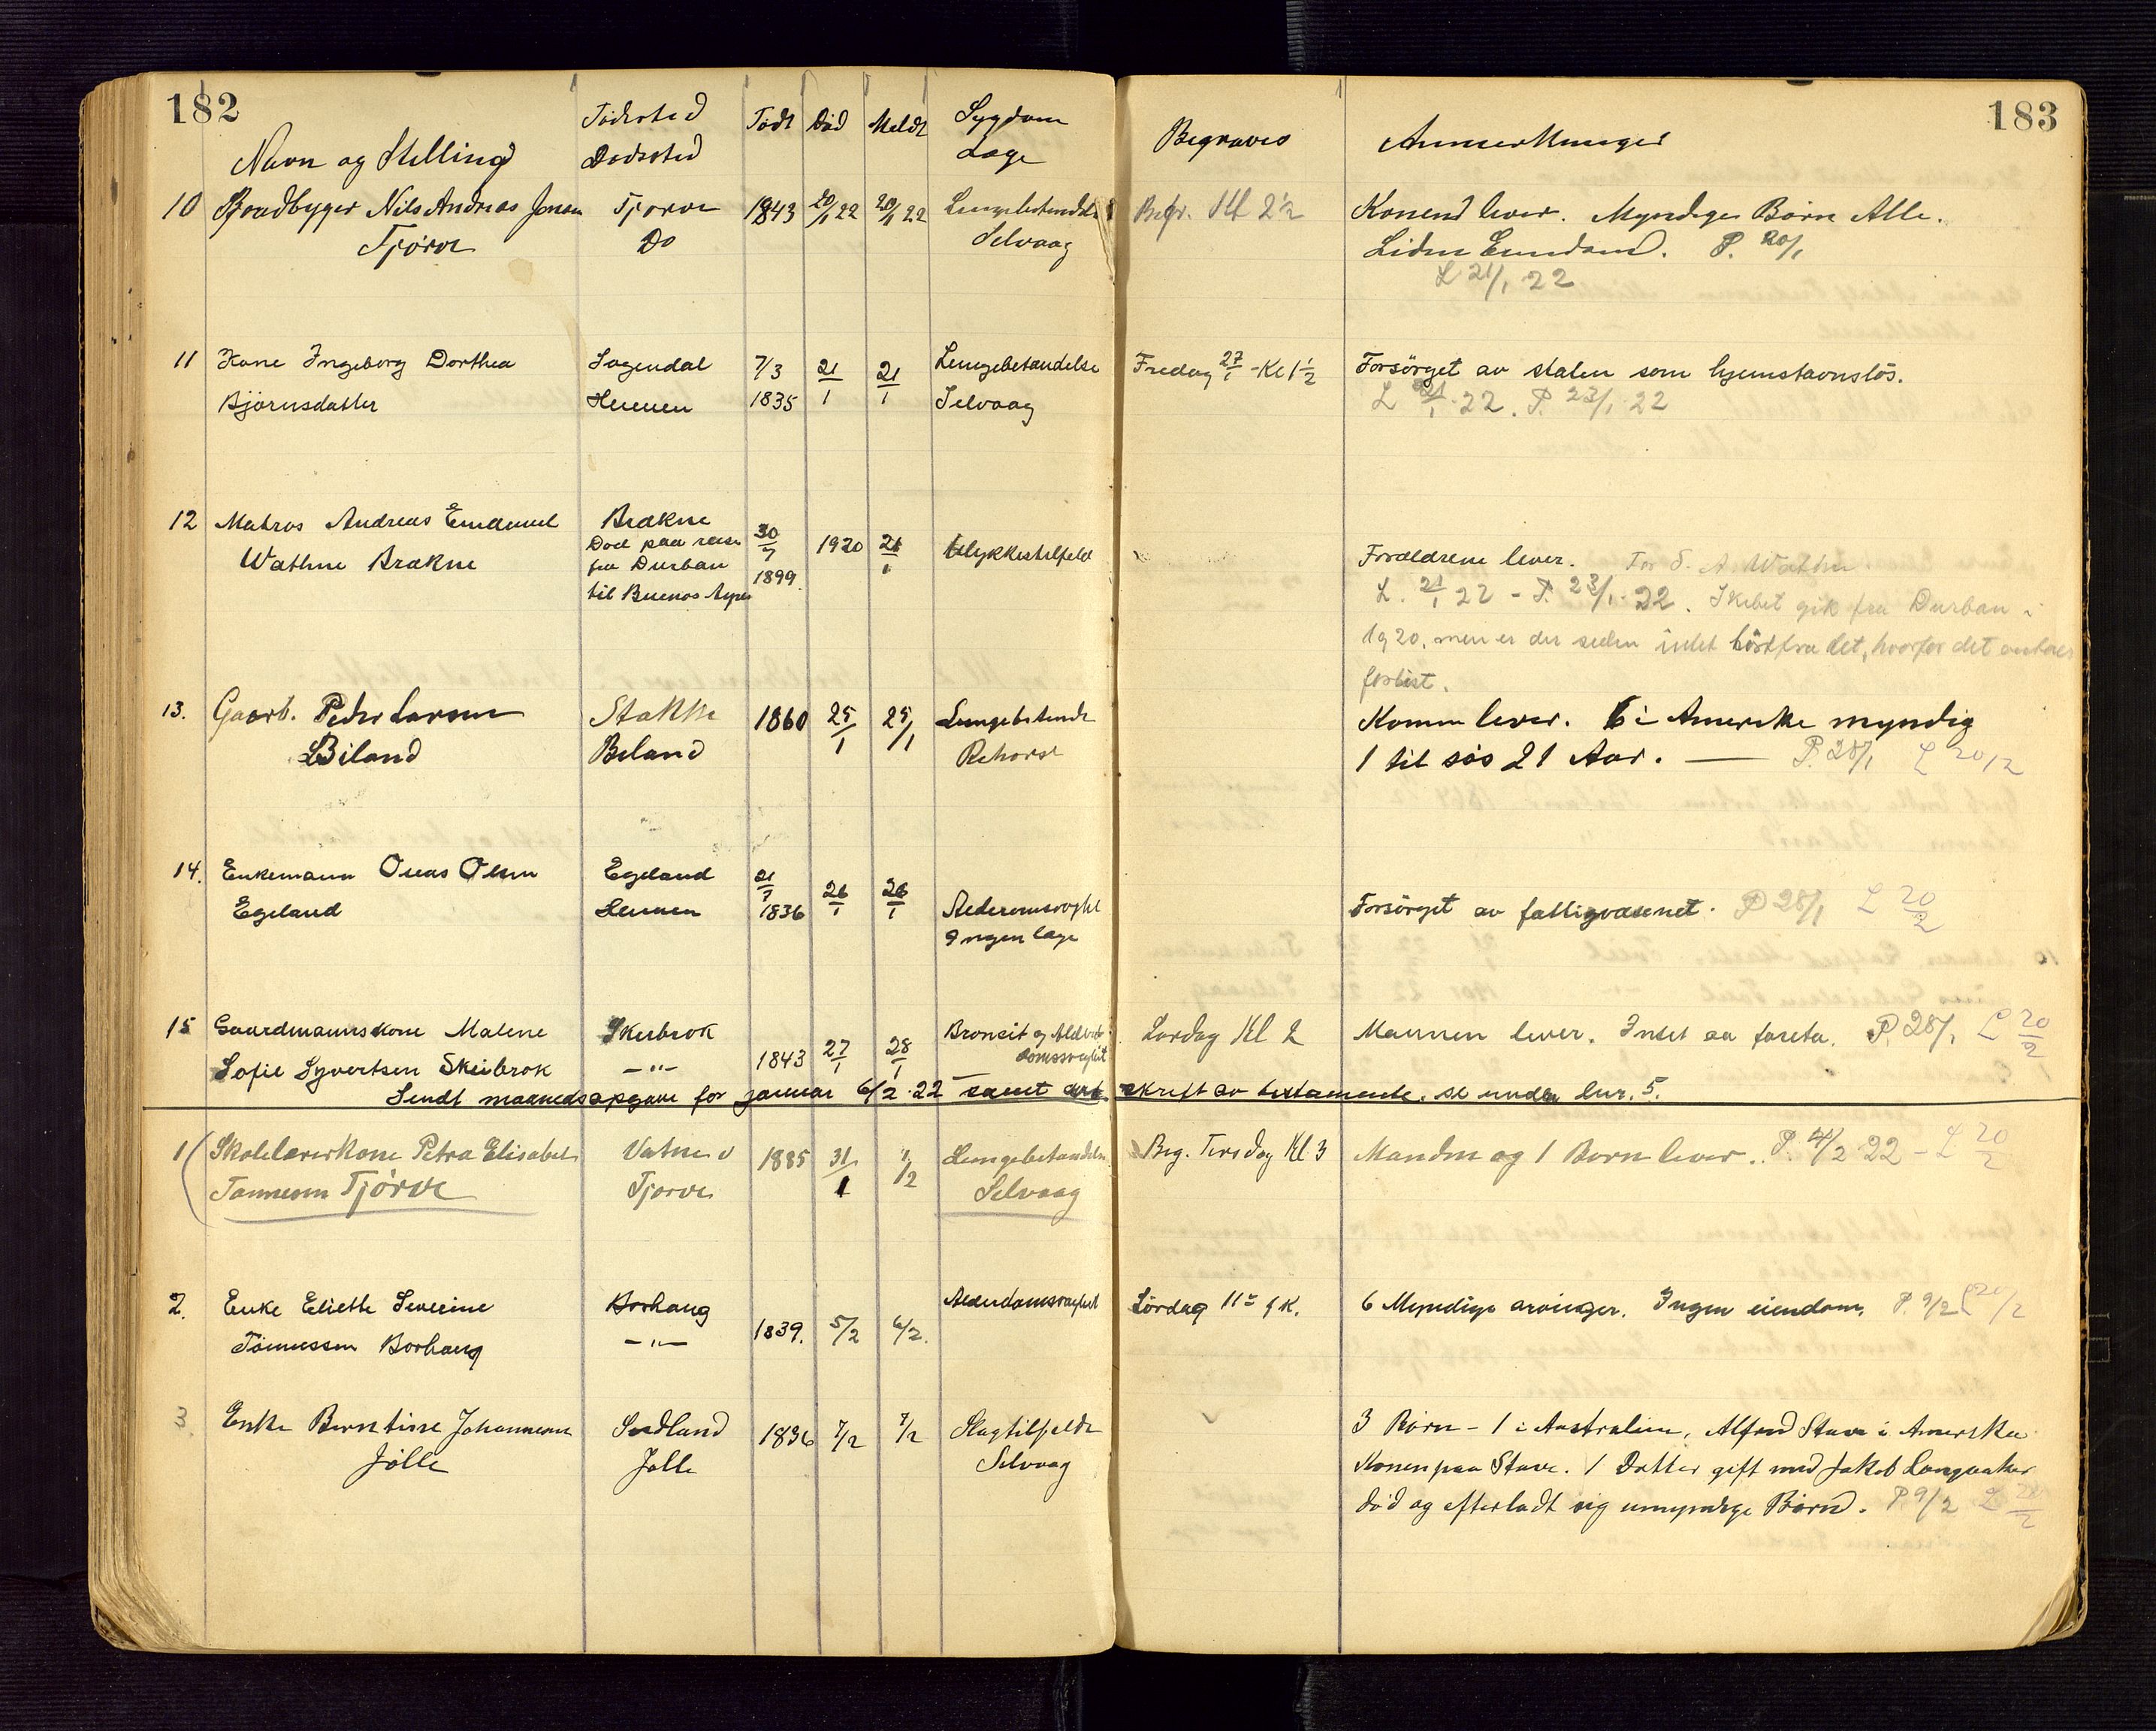 182
183
Navn og Stilling Födested Dødssted Födt Död Meldt Sygdom Læge Begraves Anmerkninger
10 Nils Andreas Jonsen Tjørve 1843 20/1 22 20/1 22 Lungebetendelse Begr. Kl 2½ Konend lever. Myndige Børn Alle.
Tjörve Do Selvaag Liden Eiendom. P. 20/1
L 21/1 22
11 Kone Ingeborg Dorthea Sogendal 7/3 21/1 21/1 Lungebetændelse Fredag 27/1 - Kl 1½ Forsörget av staten som hjemstavnslös.
Björnsdatter 1835 Selvaag L 21/1 22. P. 23/1 22
12 Matros Andreas Emanuel Brækne 30/7 1920 21/1 Ulykkestilfeld
Wathne Brækne Död paa reise fra Durban 1899. Forældrene lever. For S. A. Wathne.
til Buenos Ayres L. 21/1 22 - P. 23/1 22. Skibet gik fra Durban i
1920, men er der siden intet hört fra det, hvorfor det antaes
forlist.
13. Gaarb. Peder Larsen Stakke 1860 25/1 25/1 Lungebetende Konen lever. 6 i Amerika myndig
Biland Beland Rehorst 1 til sös 21 Aar. — P. 28/1 L 20/2
14. Enkemann Olsen Egeland 21/7 26/1 26/1
Egeland 1836 Alderomsvaghet Forsörget av fattigvæsenet. P 28/1 L 20/2
Ingen læge
15 Gaardmannskone Malene Skeibrok 1843 27/1 28/1 Bronsit og Alder- Lørdag Kl 2 Mannen lever. Intet aa foreta. P. 28/1 L 20/2
Sofie Syvertsen Skeibrok — " — domssvaghet
Sendt maanedsopgave for januar 6/2 22 samt avskrift av testamente, se under lnr. 5.
1 Skolelærerkone Petra Elisabet Vatne 1885 31/1 1/2 Lungebetændelse Beg. Tirsdag Kl 3 Manden og 1 Barn lever. P. 4/2 22 - L 20/2
Tønnesen Tjörve Tjørve Selvaag
2. Enke Eliette Severine Borhaug 1839. 5/2 6/2. Alderdomsvaghet Lördag 11 6 Myndige arvinger. Ingen eiendom. P. 9/2 L 20/2
Tönnessen Borhaug — " —
3 Enke Berntine Johannesen Sædland 1836 7/2 7/2 Slagtilfelde 3 Børn - 1 i Australien, Alfred Stave i Amerika
Jölle Jölle Selvaag Konen paa Stave. 1 Datter gift med Jakob Langaaker
död og efterladt sig umyndige Børnd. P. 9/2 L 20/2